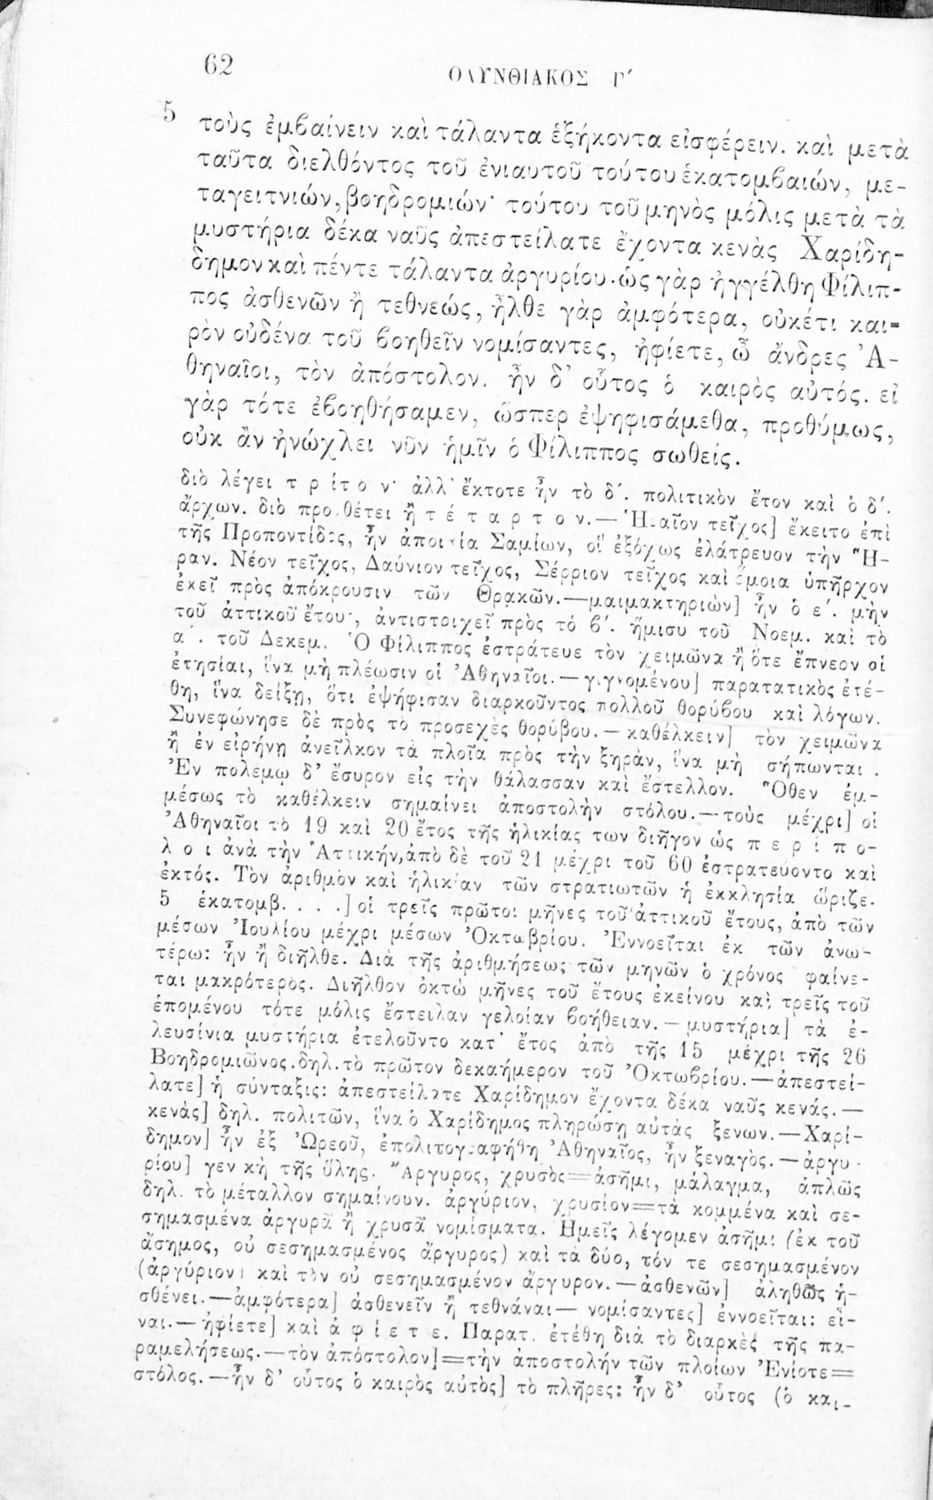 62
ΟΛΥΝΘΙΑΚΟΣ Γ΄
5
τοὺς ἐμβαίνειν καὶ τάλαντα ἑξήκοντα εἰσφέρειν. καὶ μετὰ
ταῦτα διελθόντος τοῦ ἐνιαυτοῦ τούτου ἑκατομβαιών, με-
ταγειτνιών, βοηδρομιών· τούτου τοῦ μηνὸς μόλις μετὰ τὰ
μυστήρια δέκα ναῦς ἀπεστείλατε ἔχοντα κενὰς Χαρίδη-
δημον καὶ πέντε τάλαντα ἀργυρίου. ὡς γὰρ ἠγγέλθη Φίλιπ-
πος ἀσθενῶν ἢ τεθνεώς, ἦλθε γὰρ ἀμφότερα, οὐκέτι και-
ρὸν οὐδένα τοῦ βοηθεῖν νομίσαντες, ἠφίετε, ὦ ἄνδρες Ἀ-
θηναῖοι, τὸν ἀπόστολον. ἦν δ' οὗτος ὁ καιρὸς αὐτός. εἰ
γὰρ τότε ἐβοηθήσαμεν, ὥσπερ ἐψηφισάμεθα, προθύμως,
οὐκ ἂν ἠνώχλει νῦν ἡμῖν ὁ Φίλιππος σωθείς.
διὸ λέγει τ ρ ί τ ο ν· ἀλλ' ἔκτοτε ἦν τὸ δ΄. πολιτικὸν ἔτον καὶ ὁ δ΄.
ἄρχων. διὸ προσθέτει ἢ τ έ τ α ρ τ ο ν.— Ἡραῖον τεῖχος] ἔκειτο ἐπὶ
τῆς Προποντίδος, ἦν ἀποικία Σαμίων, οἳ ἐξόχως ἐλάτρευον τὴν Ἥ-
ραν. Νέον τεῖχος, Δαύνιον τεῖχος, Σέρριον τεῖχος καὶ ὅμοια ὑπῆρχον
ἐκεῖ πρὸς ἀπόκρουσιν τῶν Θρακῶν.—μαιμακτηριὼν] ἦν ὁ ε΄. μὴν
τοῦ ἀττικοῦ ἔτους, ἀντιστοιχεῖ πρὸς τό β΄. ἥμισυ τοῦ Νοεμ. καὶ τὸ
α΄. τοῦ Δεκεμ. Ὁ Φίλιππος ἐστράτευε τὸν χειμῶνα ἢ ὅτε ἔπνεον οἱ
ἐτησίαι, ἵνα μὴ πλέωσιν οἱ Ἀθηναῖοι.— γιγνομένου] παρατατικὸς ἐτέ-
θη, ἵνα δείξῃ, ὅτι ἐψήφισαν διαρκοῦντος πολλοῦ θορύβου καὶ λόγων.
Συνεφώνησε δὲ πρὸς τὸ προσεχὲς θορύβου.— καθέλκειν] τὸν χειμῶνα
ἢ ἐν εἰρήνῃ ἀνεῖλκον τὰ πλοῖα πρὸς τὴν ξηρὰν, ἵνα μὴ σήπωνται.
Ἐν πολέμῳ δ' ἔσυρον εἰς τὴν θάλασσαν καὶ ἔστελλον. Ὅθεν ἐμ-
μέσως τὸ καθέλκειν σημαίνει ἀποστολὴν στόλου.—τοὺς μέχρι] οἱ
Ἀθηναῖοι τὸ 19 καὶ 20 ἔτος τῆς ἡλικίας των διῆγον ὡς π ε ρ ί π ο-
λ ο ι ἀνὰ τὴν Ἀττικήν, ἀπὸ δὲ τοῦ 21 μέχρι τοῦ 60 ἐστρατεύοντο καὶ
ἐκτός. Τὸν ἀριθμὸν καὶ ἡλικίαν τῶν στρατιωτῶν ἡ ἐκκλησία ὥριζε.
5 ἑκατομβ. . . .] οἱ τρεῖς πρῶτοι μῆνες τοῦ ἀττικοῦ ἔτους, ἀπὸ τῶν
μέσων Ἰουλίου μέχρι μέσων Ὀκτωβρίου. Ἐννοεῖται ἐκ τῶν ἀνω-
τέρω: ἦν ἢ διῆλθε. Διὰ τῆς ἀριθμήσεως τῶν μηνῶν ὁ χρόνος φαίνε-
ται μακρότερος. Διῆλθον ὀκτὼ μῆνες τοῦ ἔτους ἐκείνου καὶ τρεῖς τοῦ
ἑπομένου τότε μόλις ἔστειλαν γελοίαν βοήθειαν.— μυστήρια] τὰ ἐ-
λευσίνια μυστήρια ἐτελοῦντο κατ' ἔτος ἀπὸ τῆς 15 μέχρι τῆς 26
Βοηδρομιῶνος. δηλ. τὸ πρῶτον δεκαήμερον τοῦ Ὀκτωβρίου.—ἀπεστεί-
λατε] ἡ σύνταξις: ἀπεστείλατε Χαρίδημον ἔχοντα δέκα ναῦς κενάς.—
κενὰς] δηλ. πολιτῶν, ἵνα ὁ Χαρίδημος πληρώσῃ αὐτὰς ξενων.—Χαρί-
δημον] ἦν ἐξ Ὠρεοῦ, ἐπολιτογραφήθη Ἀθηναῖος, ἦν ξεναγὸς.—ἀργυ-
ρίου] γενικὴ τῆς ὕλης. Ἄργυρος, χρυσὸς=ἀσῆμι, μάλαγμα, ἁπλῶς
δηλ. τὸ μέταλλον σημαίνουν. ἀργύριον, χρυσίον=τὰ κομμένα καὶ σε-
σημασμένα ἀργυρᾶ ἢ χρυσᾶ νομίσματα. Ἡμεῖς λέγομεν ἀσῆμι (ἐκ τοῦ
ἄσημος, οὐ σεσημασμένος ἄργυρος) καὶ τὰ δύο, τόν τε σεσημασμένον
(ἀργύριον) καὶ τὸν οὐ σεσημασμένον ἄργυρον.—ἀσθενῶν] ἀληθῶς ἠ-
σθένει.—ἀμφότερα] ἀσθενεῖν ἢ τεθνάναι— νομίσαντες] ἐννοεῖται: εἶ-
ναι.—ἠφίετε] καὶ ἀ φ ί ε τ ε. Παρατ. ἐτέθη διὰ τὸ διαρκὲς τῆς πα-
ραμελήσεως.—τὸν ἀπόστολον]=τὴν ἀποστολήν τῶν πλοίων Ἐνίοτε=
στόλος.—ἦν δ' οὗτος ὁ καιρὸς αὐτὸς] τὸ πλῆρες: ἦν δ' οὗτος (ὁ και-